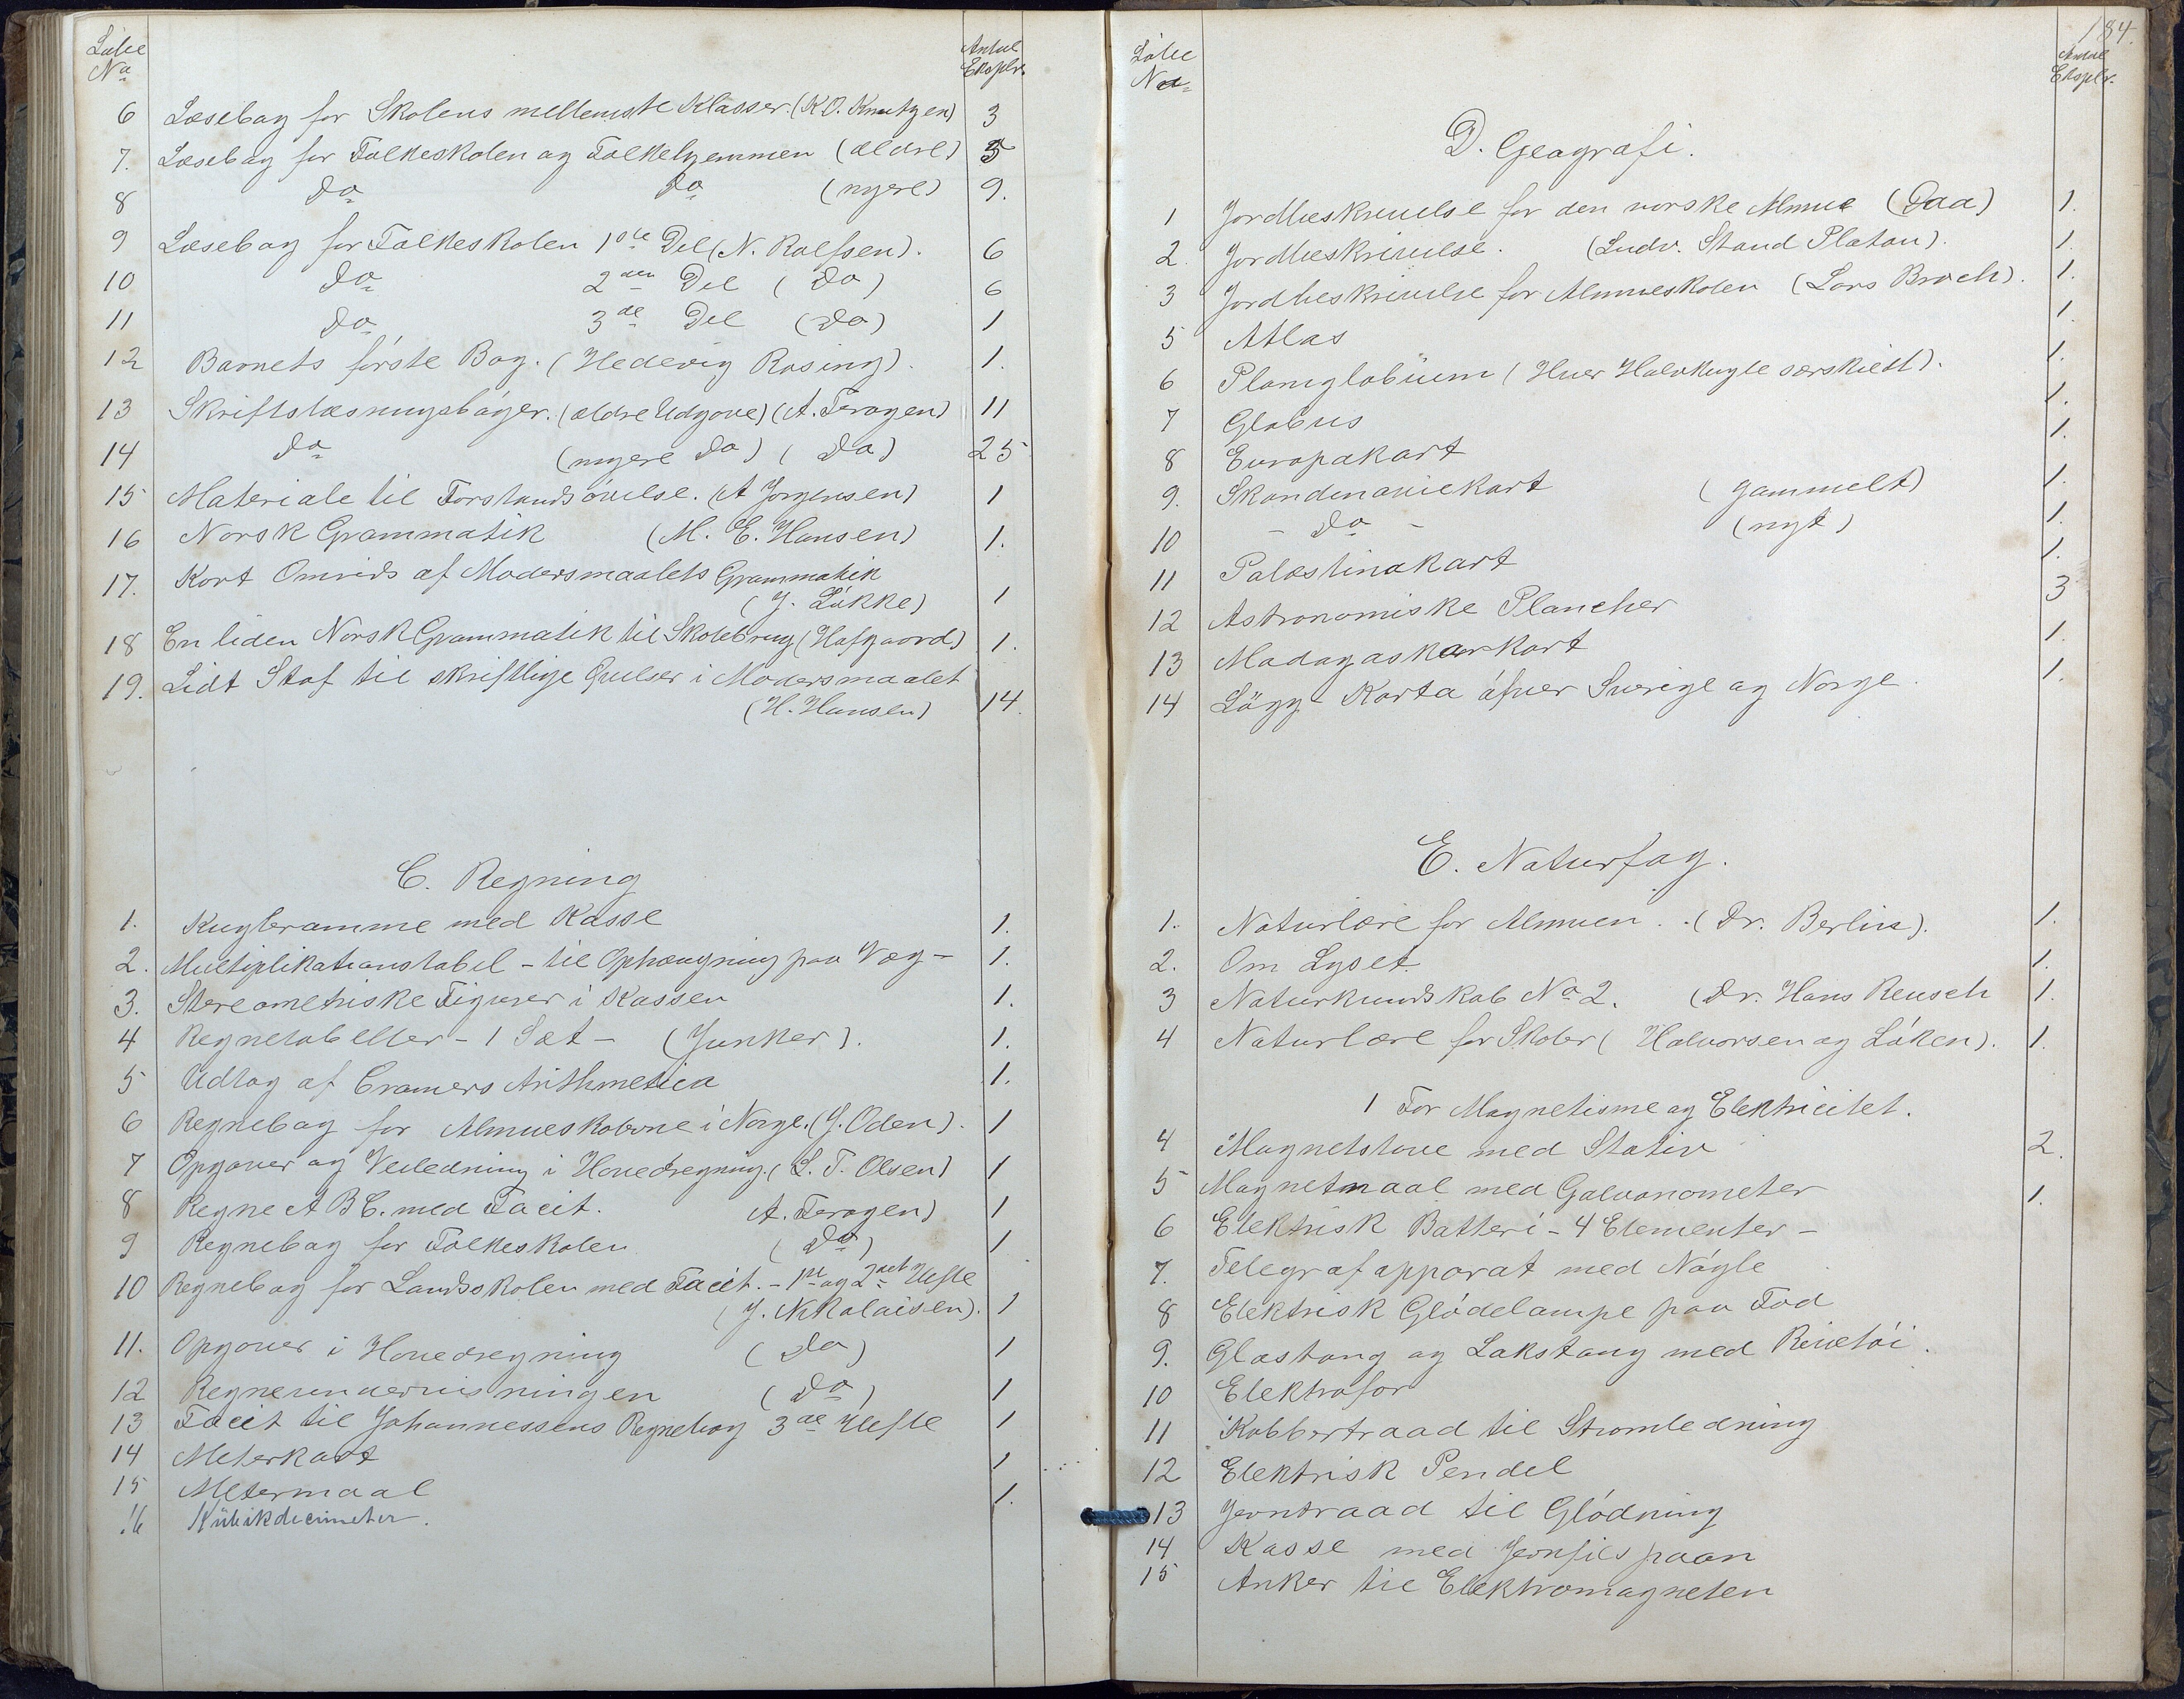 Løbe
No
Antal
Eksplr.
6 Læsebog for Skolens mellemste Klasser. (K.O. Knutzen) 3
7. Læsebog for Folkeskolen og Folkehjemmen (ældre) 5
8 do do (nyere) 9.
9 Læsebog for Folkeskolen 1ste Del (N. Rolfsen). 6
10 do 2den Del (do) 6
11 do 3de Del (do) 1
12 Barnets første Bog. (Hedevig Rosing). 1.
13 Skriftslæsningsbøger. (ældre Udgave) (A. Feragen) 11
14 do (nyere do) (do) 25
15 Materiale til Forstandsøvelse. (A Jørgensen) 1
16 Norsk Grammatik (M. E. Hansen) 1.
17. Kort Omrids af Modersmaalets Grammatik
(J. Løkke) 1
18 En liden Norsk Grammatik til Skolebrug (Hofgaard) 1.
19. Lidt Stof til skriftlige Øvelser i Modersmaalet
(H. Hansen) 14.
C. Regning
1. Kugleramme med Kasse 1.
2. Multiplikationstabel - til Ophængning paa Væg - 1.
3. Stereometriske Figurer i Kassen 1.
4 Regnetabeller - 1 Sæt - (Junker). 1.
5 Udtog af Cramers Arithmetica 1.
6 Regnebog for Almueskolerne i Norge. (J. Oden). 1
7 Opgaver og Veiledning i Hovedregning. (L. T. Olsen) 1
8 Regne A B C. med Facit. A. Feragen) 1
9 Regnebog for Folkeskolen (do) 1
10 Regnebog for Landsskolen med Facit. - 1ste og 2det Hefte
(J. Nikolaisen). 1
11. Opgaver i Hovedregning (do) 1
12 Regneundervisningen (do) 1
13 Facit til Johannessens Regnebog 3de Hefte 1
14 Meterkart 1
15 Metermaal 1.
16 Kubikdecimeter.
184.
Løbe
No
Antal
Eksplr.
D. Geografi.
1 Jordbeskrivelse for den norske Almue (Daa) 1.
2. Jordbeskrivelse. (Ludv. Stoud Platou). 1.
3 Jordbeskrivelse for Almueskolen (Lars Broch). 1.
5 Atlas 1.
6 Planiglobium (Hver Halvkugle særskiedt). 1.
7 Globus 1.
8 Europakart 1.
9. Skandinaviekart (gammelt) 1.
10 - do - (nyt) 1.
11 Palæstinakart 1.
12 Astronomiske Plancher 3
13 Madagaskarkart 1.
14 Lägg Karta öfver Sverige og Norge. 1.
E. Naturfag.
1. Naturlære for Almuen. (Dr. Berlin). 1.
2. Om Lyset. 1.
3 Naturkundskab No 2. (Dr. Hans Reusch 1.
4 Naturlære for Skoler (Halvorsen og Løken). 1.
1 For Magnetisme og Elektricitet.
4 Magnetstave med Stativ 2.
5 Magnetnaal med Galvanometer 1.
6 Elektrisk Batteri - 4 Elementer -
7. Telegrafapparat med Nøgle
8 Elektrisk Glødelampe paa Fod
9. Glasstang og Lakstang med Rivetøi.
10 Elektrofor
11 Kobbertraad til Strømledning
12 Elektrisk Pendel
13 Jerntraad til Glødning
14 Kasse med Jernfilspaan
15 Anker til Elektromagneten